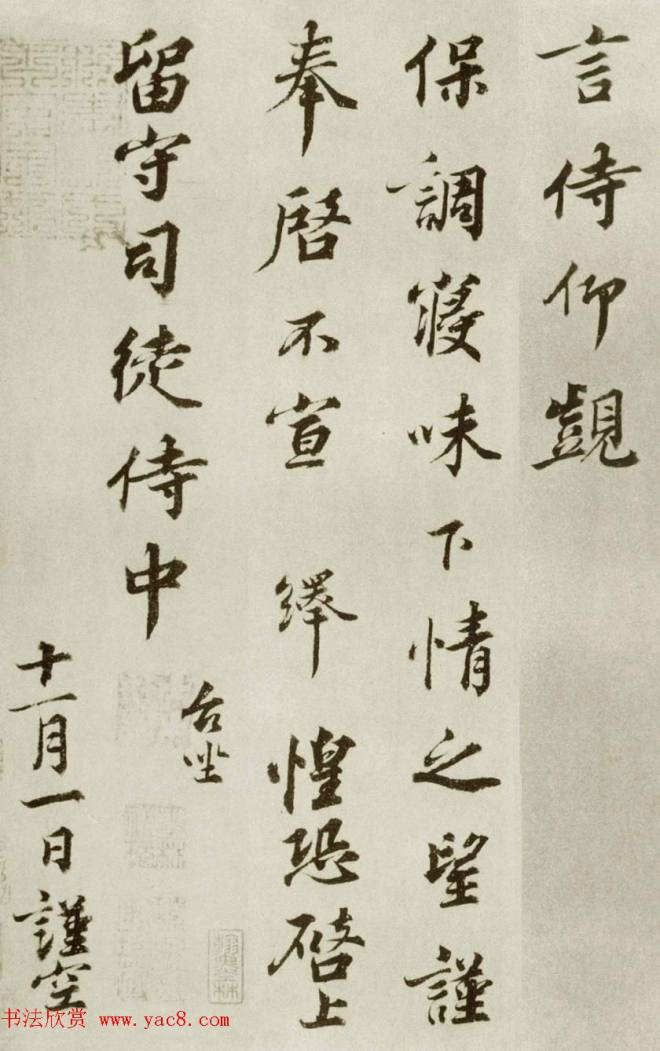 言侍仰覬
保調寢味下情之望謹
奉啓不宣 繹惶恐啓上
留守司徒侍中
台坐
十一月一日謹空
书法欣赏 www.yac8.com